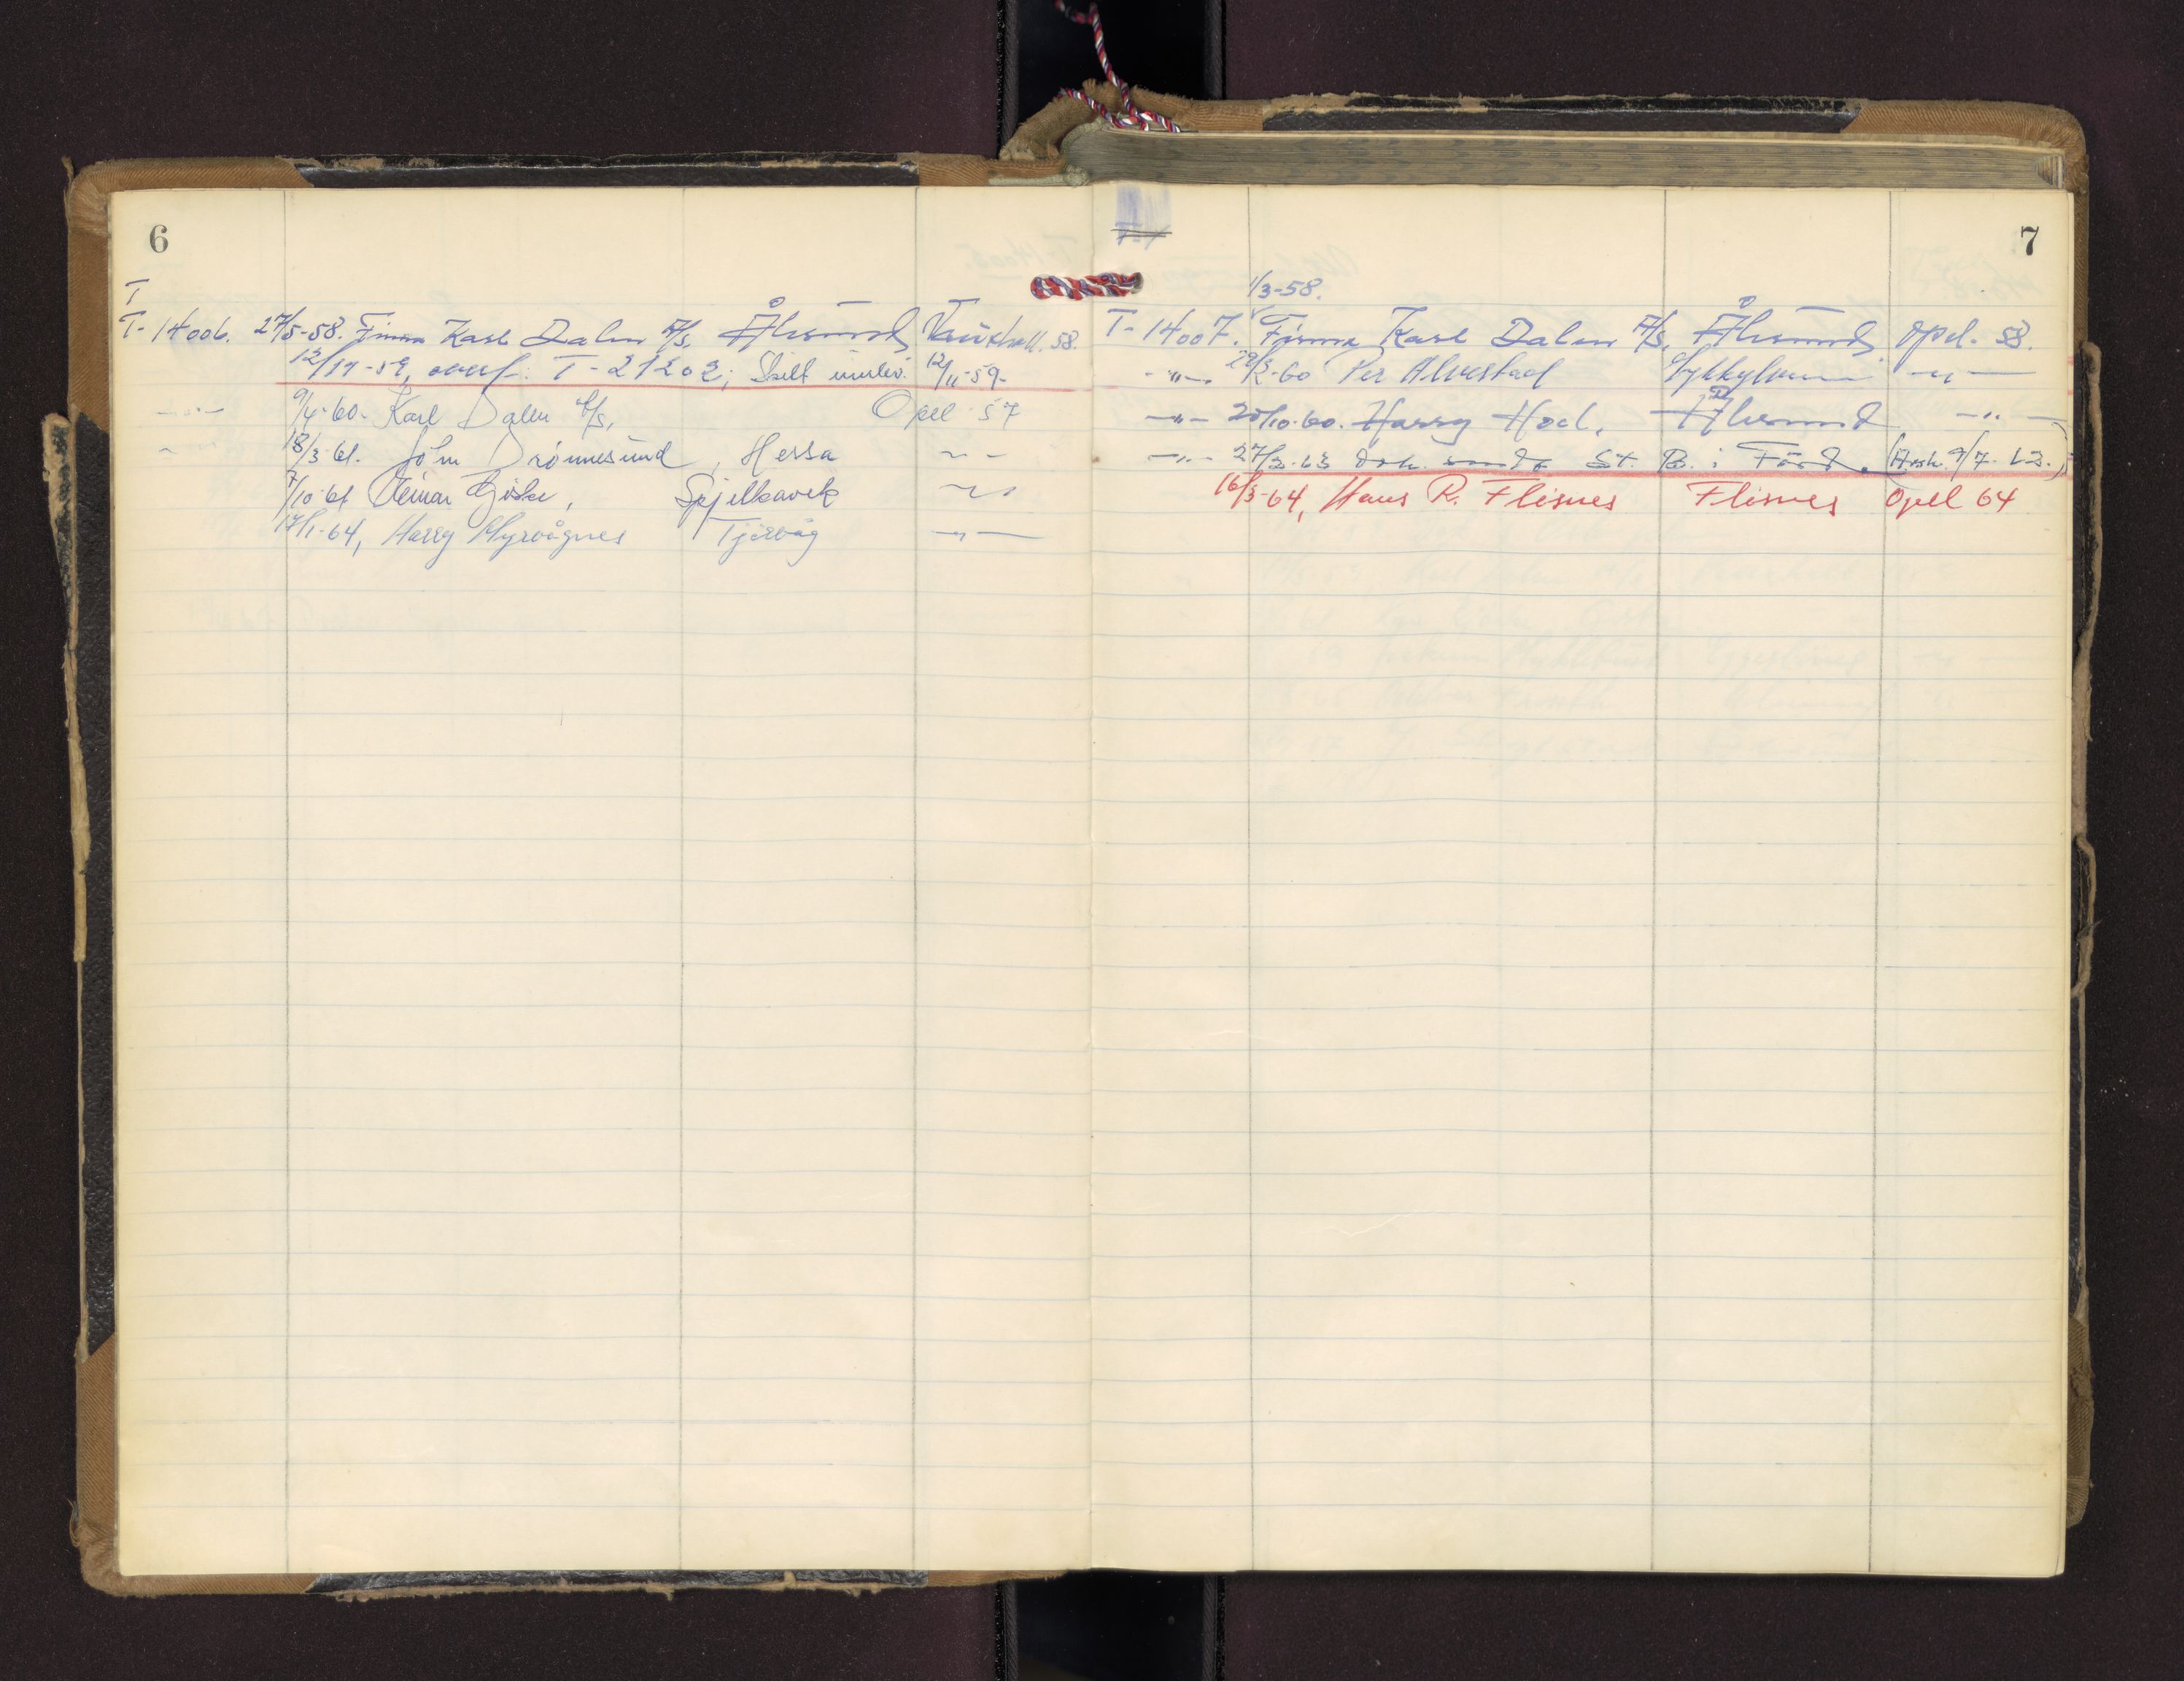 6
T
T- 14006. 27/5-58. Firma Karl Dalen A/S, Ålesund Vauxhall. 58.
12/11-59, overf. T-21202; Skilt innlev. 12/11-59-
-"- 9/4-60- Karl Dalen A/S, Opel 57
-"- 18/3-61. John Drønnesund, Hessa -"-
7/10-61 Giske, Spjelkavik -"-
17/1-64, Harry Myrvågnes Tjørvåg -"-
7
1/3-58.
T- 14007. Firma Karl Dalen A/S, Ålesund Opel. 58.
-"- 29/2-60 Per Alvestad Sykkylven -"-
-"- 20/10-60. Harry Hoel, Ålesund -"-
-"- 27/3-63 Dok. sendt St. B. i Førde. (Avsk. 9/7-63.)
16/3-64, Hans R. Flisnes Flisnes Opel 64